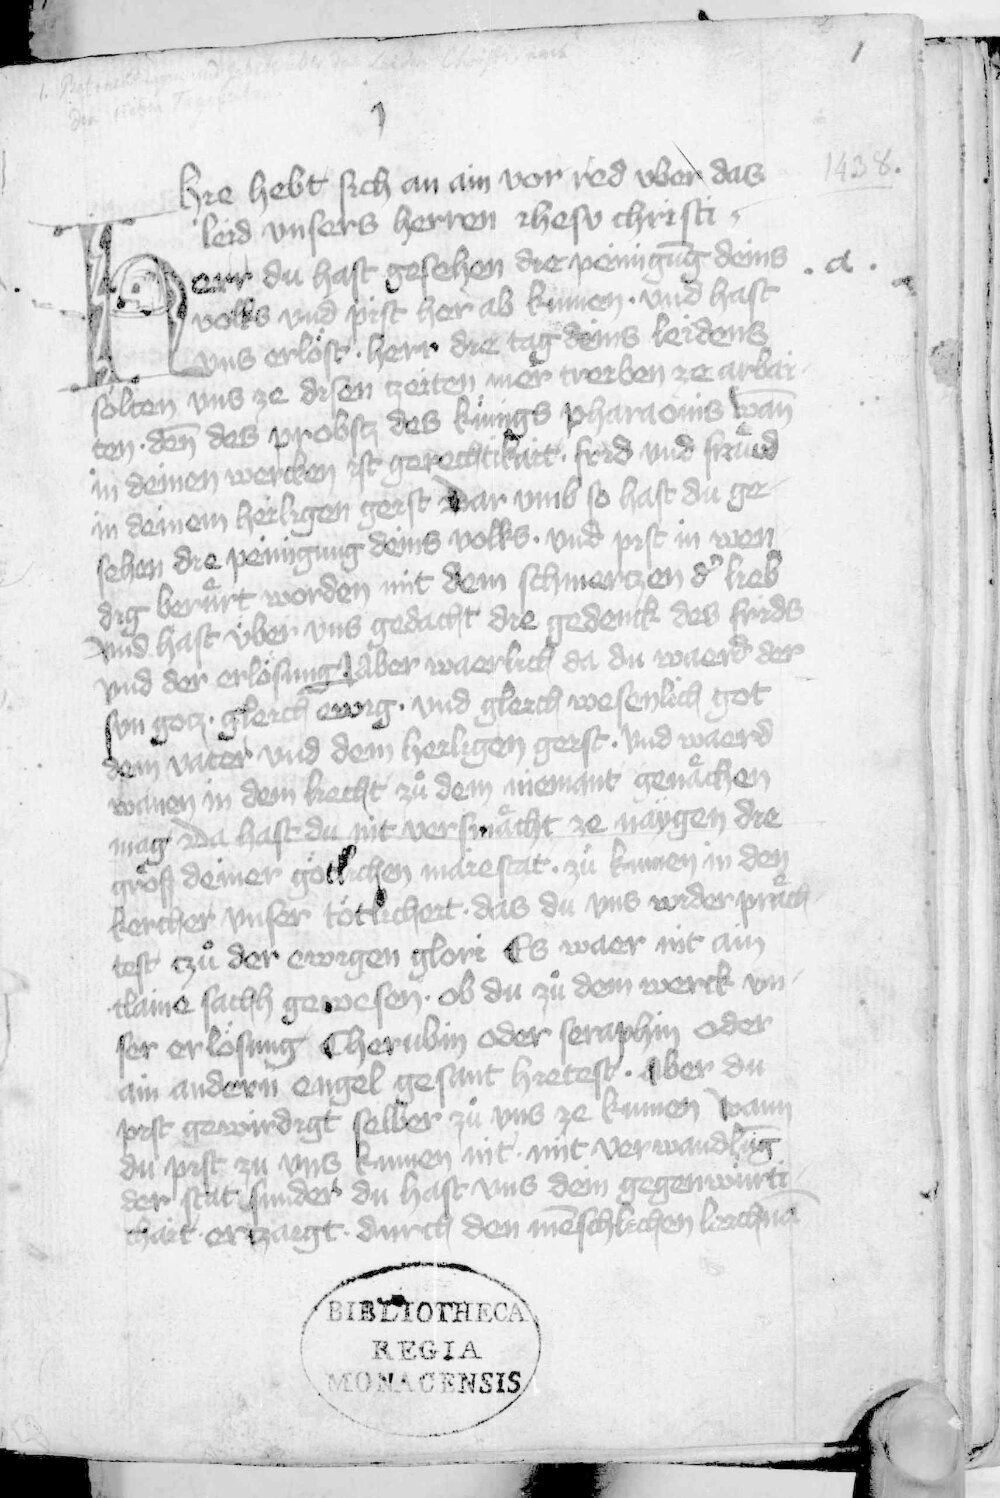 1
1
1438.
hie hebt sich an ain vor red vber das
leid vnsers herren ihesu christi
Herr du hast gesehen die peinigūg deins
. a .
volks vnd pist her ab kumen · vnd hast
vns erlöst · herr die tag deins leidens
solten vns ze disen czeiten mer treiben ze arbai
ten · deñ des probstz des künigs pharaonis wañ
in deinen wercken ist gerechtikait · frid vnd fräud
in deinem heiligen geist dar vmb so hast du ge
sehen die peinigung deins volks · vnd pist in wen
dig berürt worden mit dem schmertzen dˀ lieb
vnd hast über vns gedacht die gedenck des frids
vnd der erlösung Aber waerlich da du waerd der
sun gotz · gleich ewig · vnd gleich wesenlich got
dem vater vnd dem heiligen geist · vnd waerd
wanen in dem liecht zů dem niemant genächen
mag Da hast du nit versmächt ze naygen die
gröss deiner götlichen maiestat · zů kumen in den
kercher vnser tötlicheit · das du vns wider präch
test czů der ewigen glori Es waer nit ain
claine sachh gewesen · ob du zů dem werck vn
ser erlösung Cherubin oder seraphin oder
ain andern engel gesant hietest · Aber du
pist gewirdigt selber zů vns ze kumen wann
du pist zu vns kumen nit · mit verwandlūg
der stat sunder du hast vns dein gegenwürti
chait · erczaigt · durch den mēschlichen leichnā
BIBLIOTHECA
REGIA
MONACENSIS